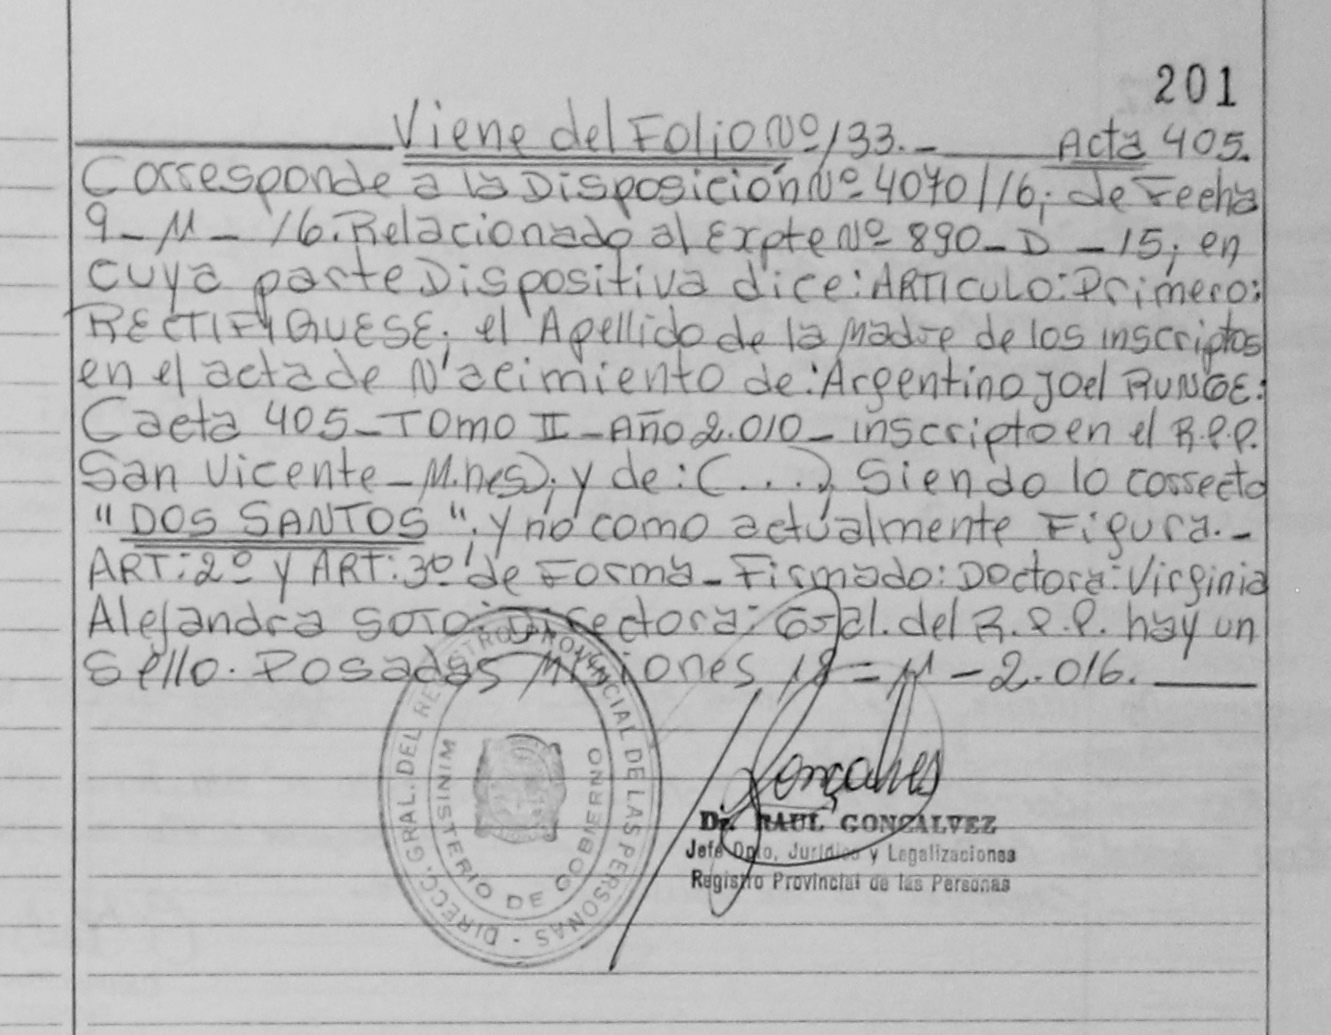 201
Viene del Folio Nº 133.- Acta 405.
Corresponde a la Disposición Nº 4070/16; de Fecha
9-11-16. Relacionado al Expte Nº 890-D-15; en
cuya parte Dispositiva dice: ARTICULO: Primero:
RECTIFIQUESE; el Apellido de la Madre de los inscriptos
en el acta de Nacimiento de: Argentino Joel RUNGE:
(acta 405-TOMO II-Año 2.010- inscripto en el R.P.P.
San Vicente-M.nes); y de: (...) Siendo lo correcto
"DOS SANTOS". y no como actualmente Figura.-
ART: 2º y ART: 3º de Forma- Firmado: Doctora: Virginia
Alejandra SOTO: Directora: Gral. del R.P.P. hay un
Sello. Posadas Misiones 18-11-2.016.
DIRECC. GRAL. DEL REGISTRO PROVINCIAL DE LAS PERSONAS -
MINISTERIO DE GOBIERNO
Dr. RAUL GONZALVEZ
Jefe Dpto. Jurídico y Legalizaciones
Registro Provincial de las Personas